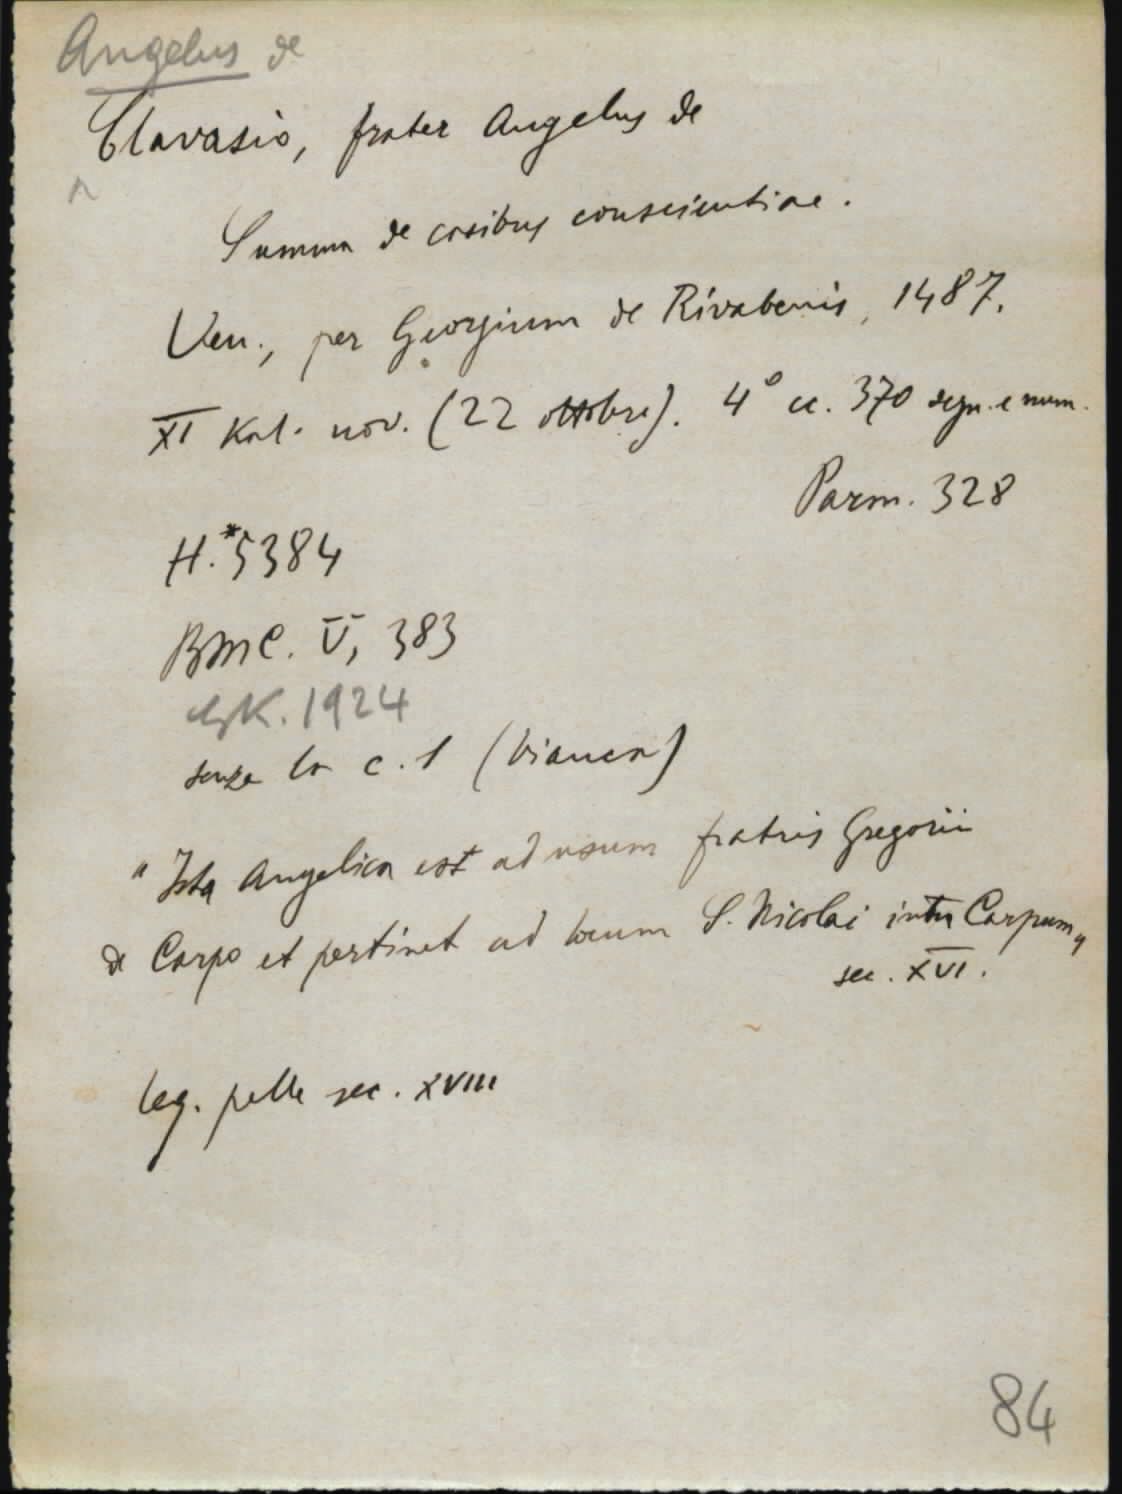 Angelus de
Clavasio, frater Angelus de
Summa de casibus conscientiae.
Ven., per Georgium de Rivabenis, 1487.
XI Kal. nov. (22 ottobre). 4° cc. 370 segn. e num.
Parm. 328
H.*5384
BMC. V, 383
GK. 1924
senza la c. 1 (bianca)
"Ista Angelica est ad usum fratris Gregorii
de Carpo et pertinet ad locum S. Nicolai intra Carpum"
sec. XVI.
leg. pelle sec. XVIII
84